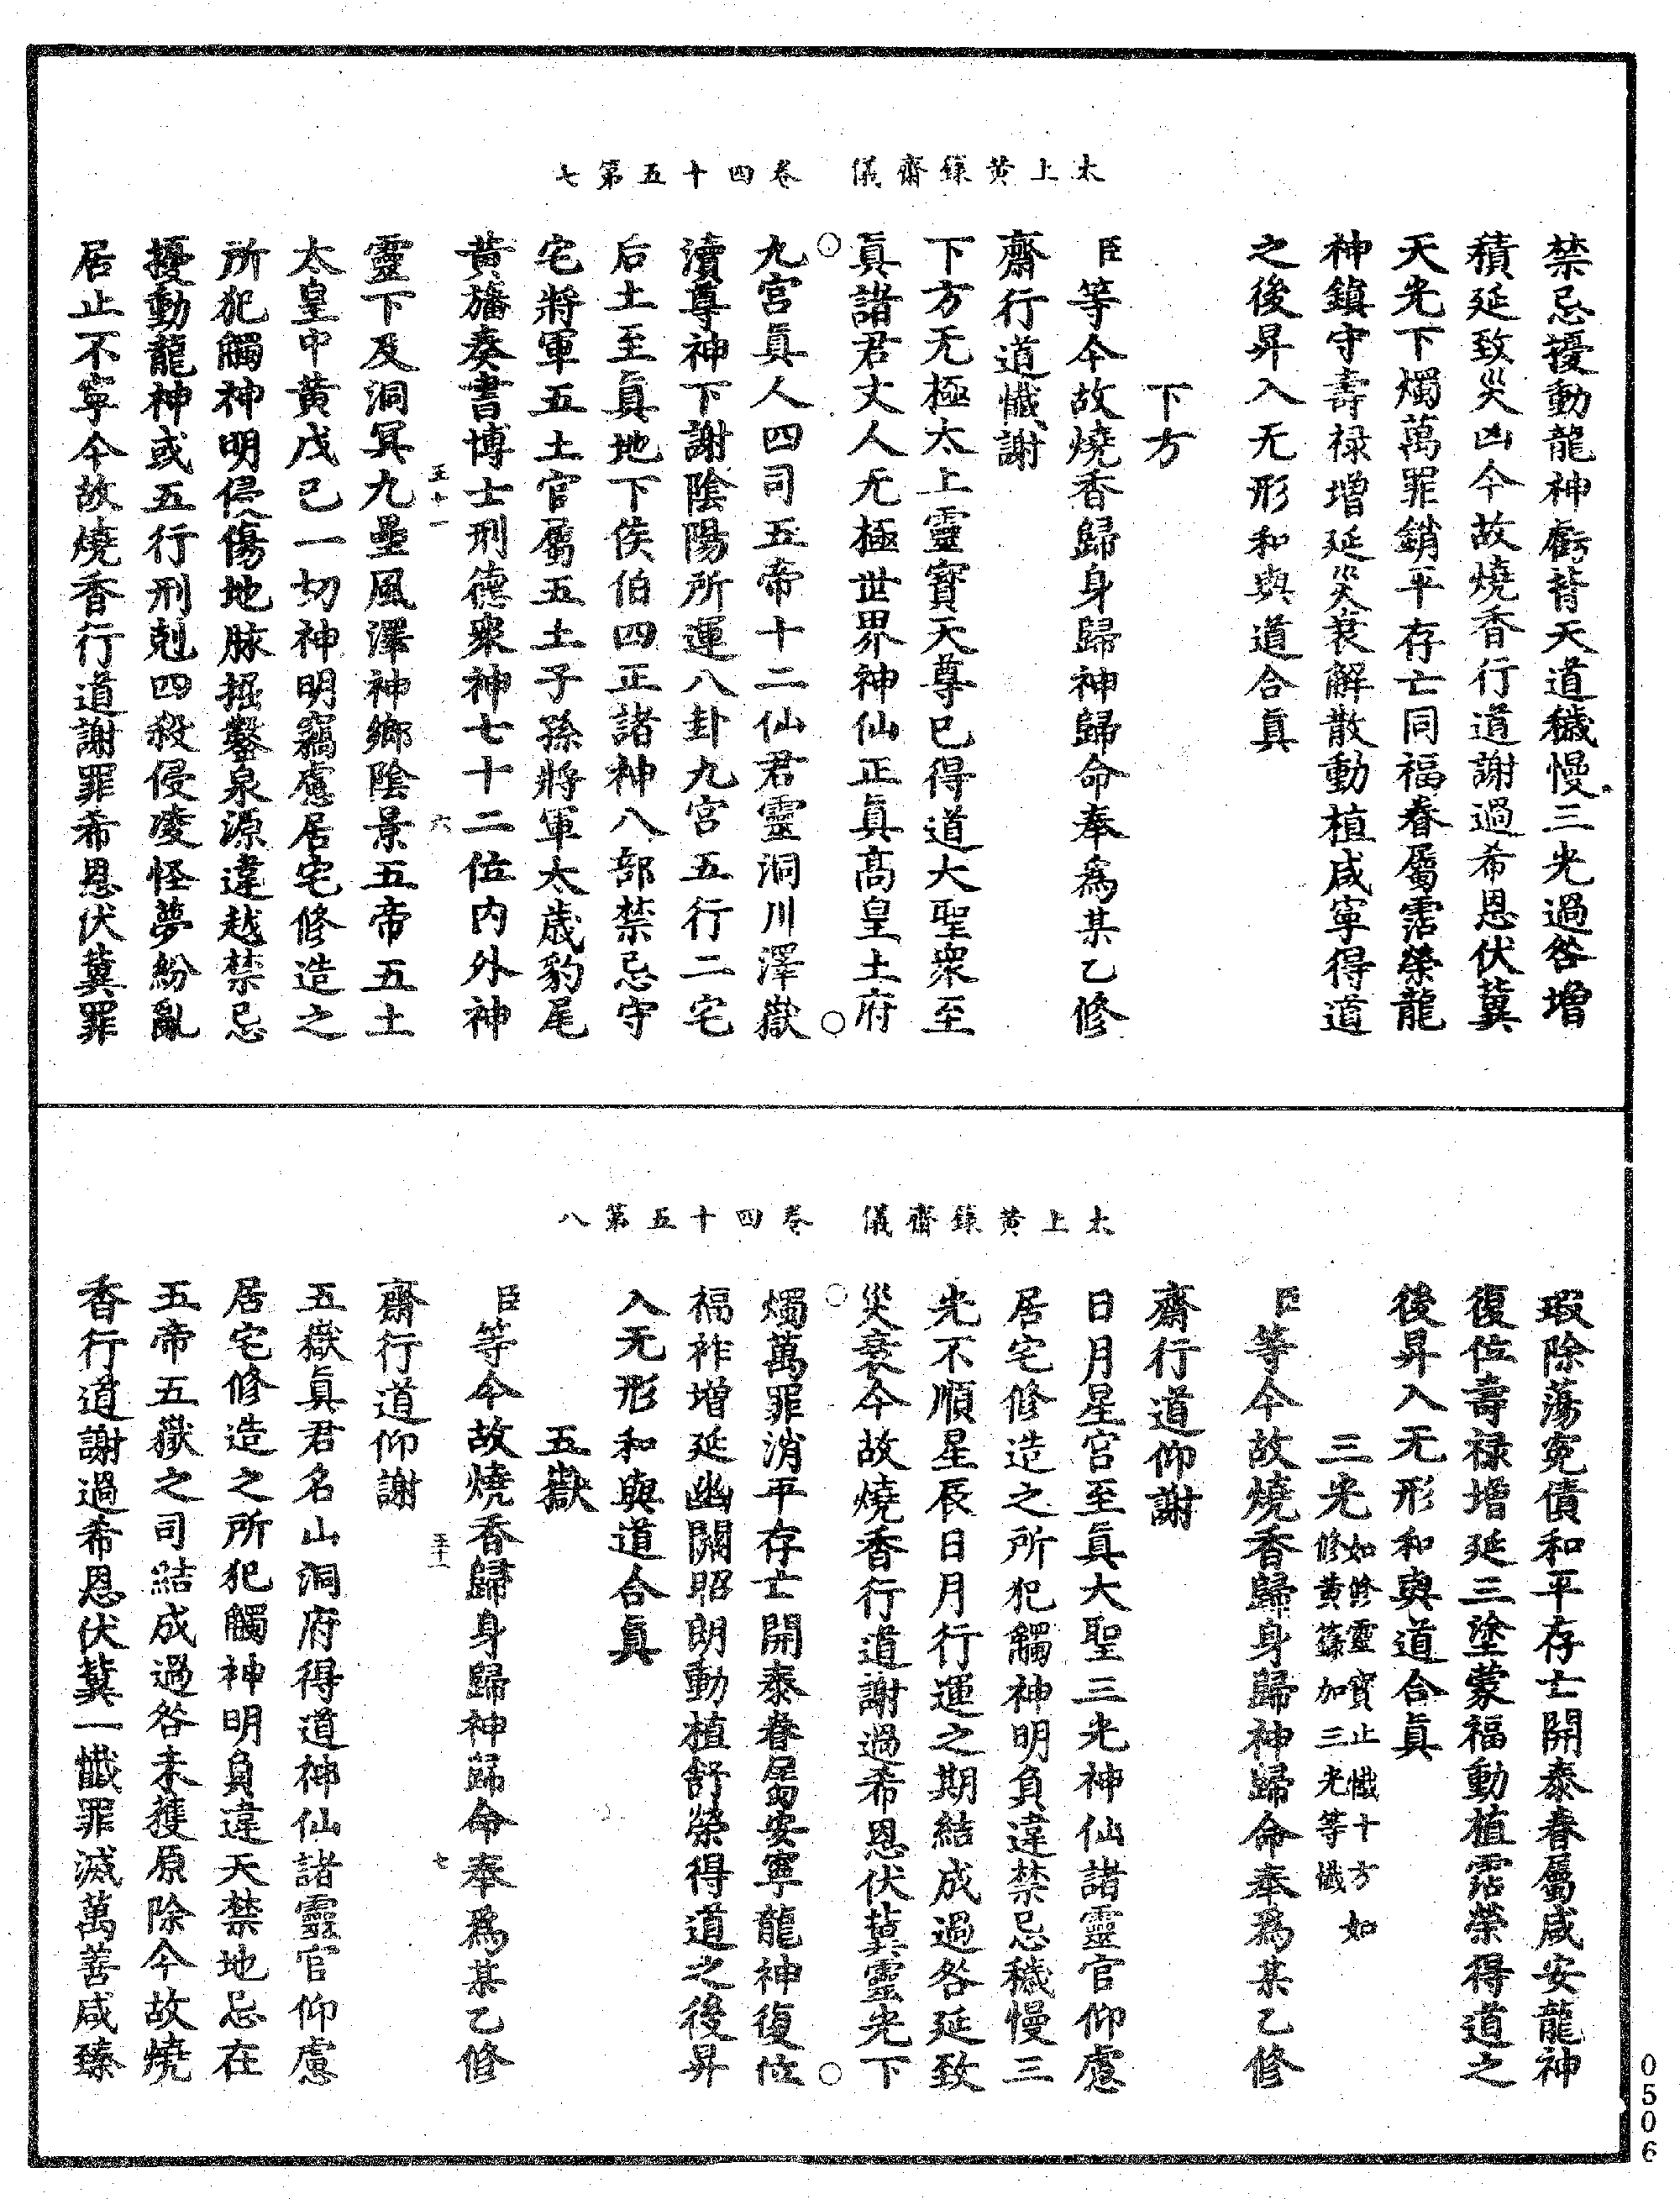 太上黄籙齋儀　卷四十五第七
禁忌擾動龍神虧背天道穢慢三光過咎增
積延致災凶今故燒香行道謝過希恩伏冀
天光下燭萬罪銷平存亡同福眷屬霑榮龍
神鎮守壽禄增延災衰解散動植咸寧得道
之後昇入无形和與道合眞
下方
臣等今故燒香歸身歸神歸命奉爲某乙修
齋行道懺謝
下方无極太上靈寶天尊已得道大聖衆至
眞諸君丈人无極世界神仙正眞高皇土府
九宮眞人四司五帝十二仙君靈洞川澤嶽
瀆尊神下謝陰陽所運八卦九宮五行二宅
后土至眞地下侯伯四正諸神八部禁忌守
宅將軍五土官屬五土子孫將軍太歲豹尾
黄旛奏書博士刑德衆神七十二位内外神
五十一　六
靈下及洞冥九壘風澤神鄉陰景五帝五土
太皇中黄戊己一切神明竊慮居宅修造之
所犯觸神明侵傷地脉掘鑿泉源違越禁忌
擾動龍神或五行刑剋四殺侵凌怪夢紛亂
居止不寧今故燒香行道謝罪希恩伏冀罪
太上黄籙齋儀　卷四十五第八
瑕除蕩寃債和平存亡開泰眷屬咸安龍神
復位壽禄增延三塗蒙福動植霑榮得道之
後昇入无形和與道合眞
三光如修靈寶止懺十方如修黄籙加三光等懺
臣等今故燒香歸身歸神歸命奉爲某乙修
齋行道仰謝
日月星宫至眞大聖三光神仙諸靈官仰慮
居宅修造之所犯觸神明負違禁忌穢慢三
光不順星辰日月行運之期結成過咎延致
災衰今故燒香行道謝過希恩伏冀靈光下
燭萬罪消平存亡開泰眷屬安寧龍神復位
福祚增延幽關昭朗動植舒榮得道之後昇
入无形和與道合眞
五嶽
臣等今故燒香歸身歸神歸命奉爲某乙修
五十一　七
齋行道仰謝
五嶽眞君名山洞府得道神仙諸靈官仰慮
居宅修造之所犯觸神明負違天禁地忌在
五帝五嶽之司結成過咎未獲原除今故燒
香行道謝過希恩伏冀一懺罪滅萬善咸臻
0506